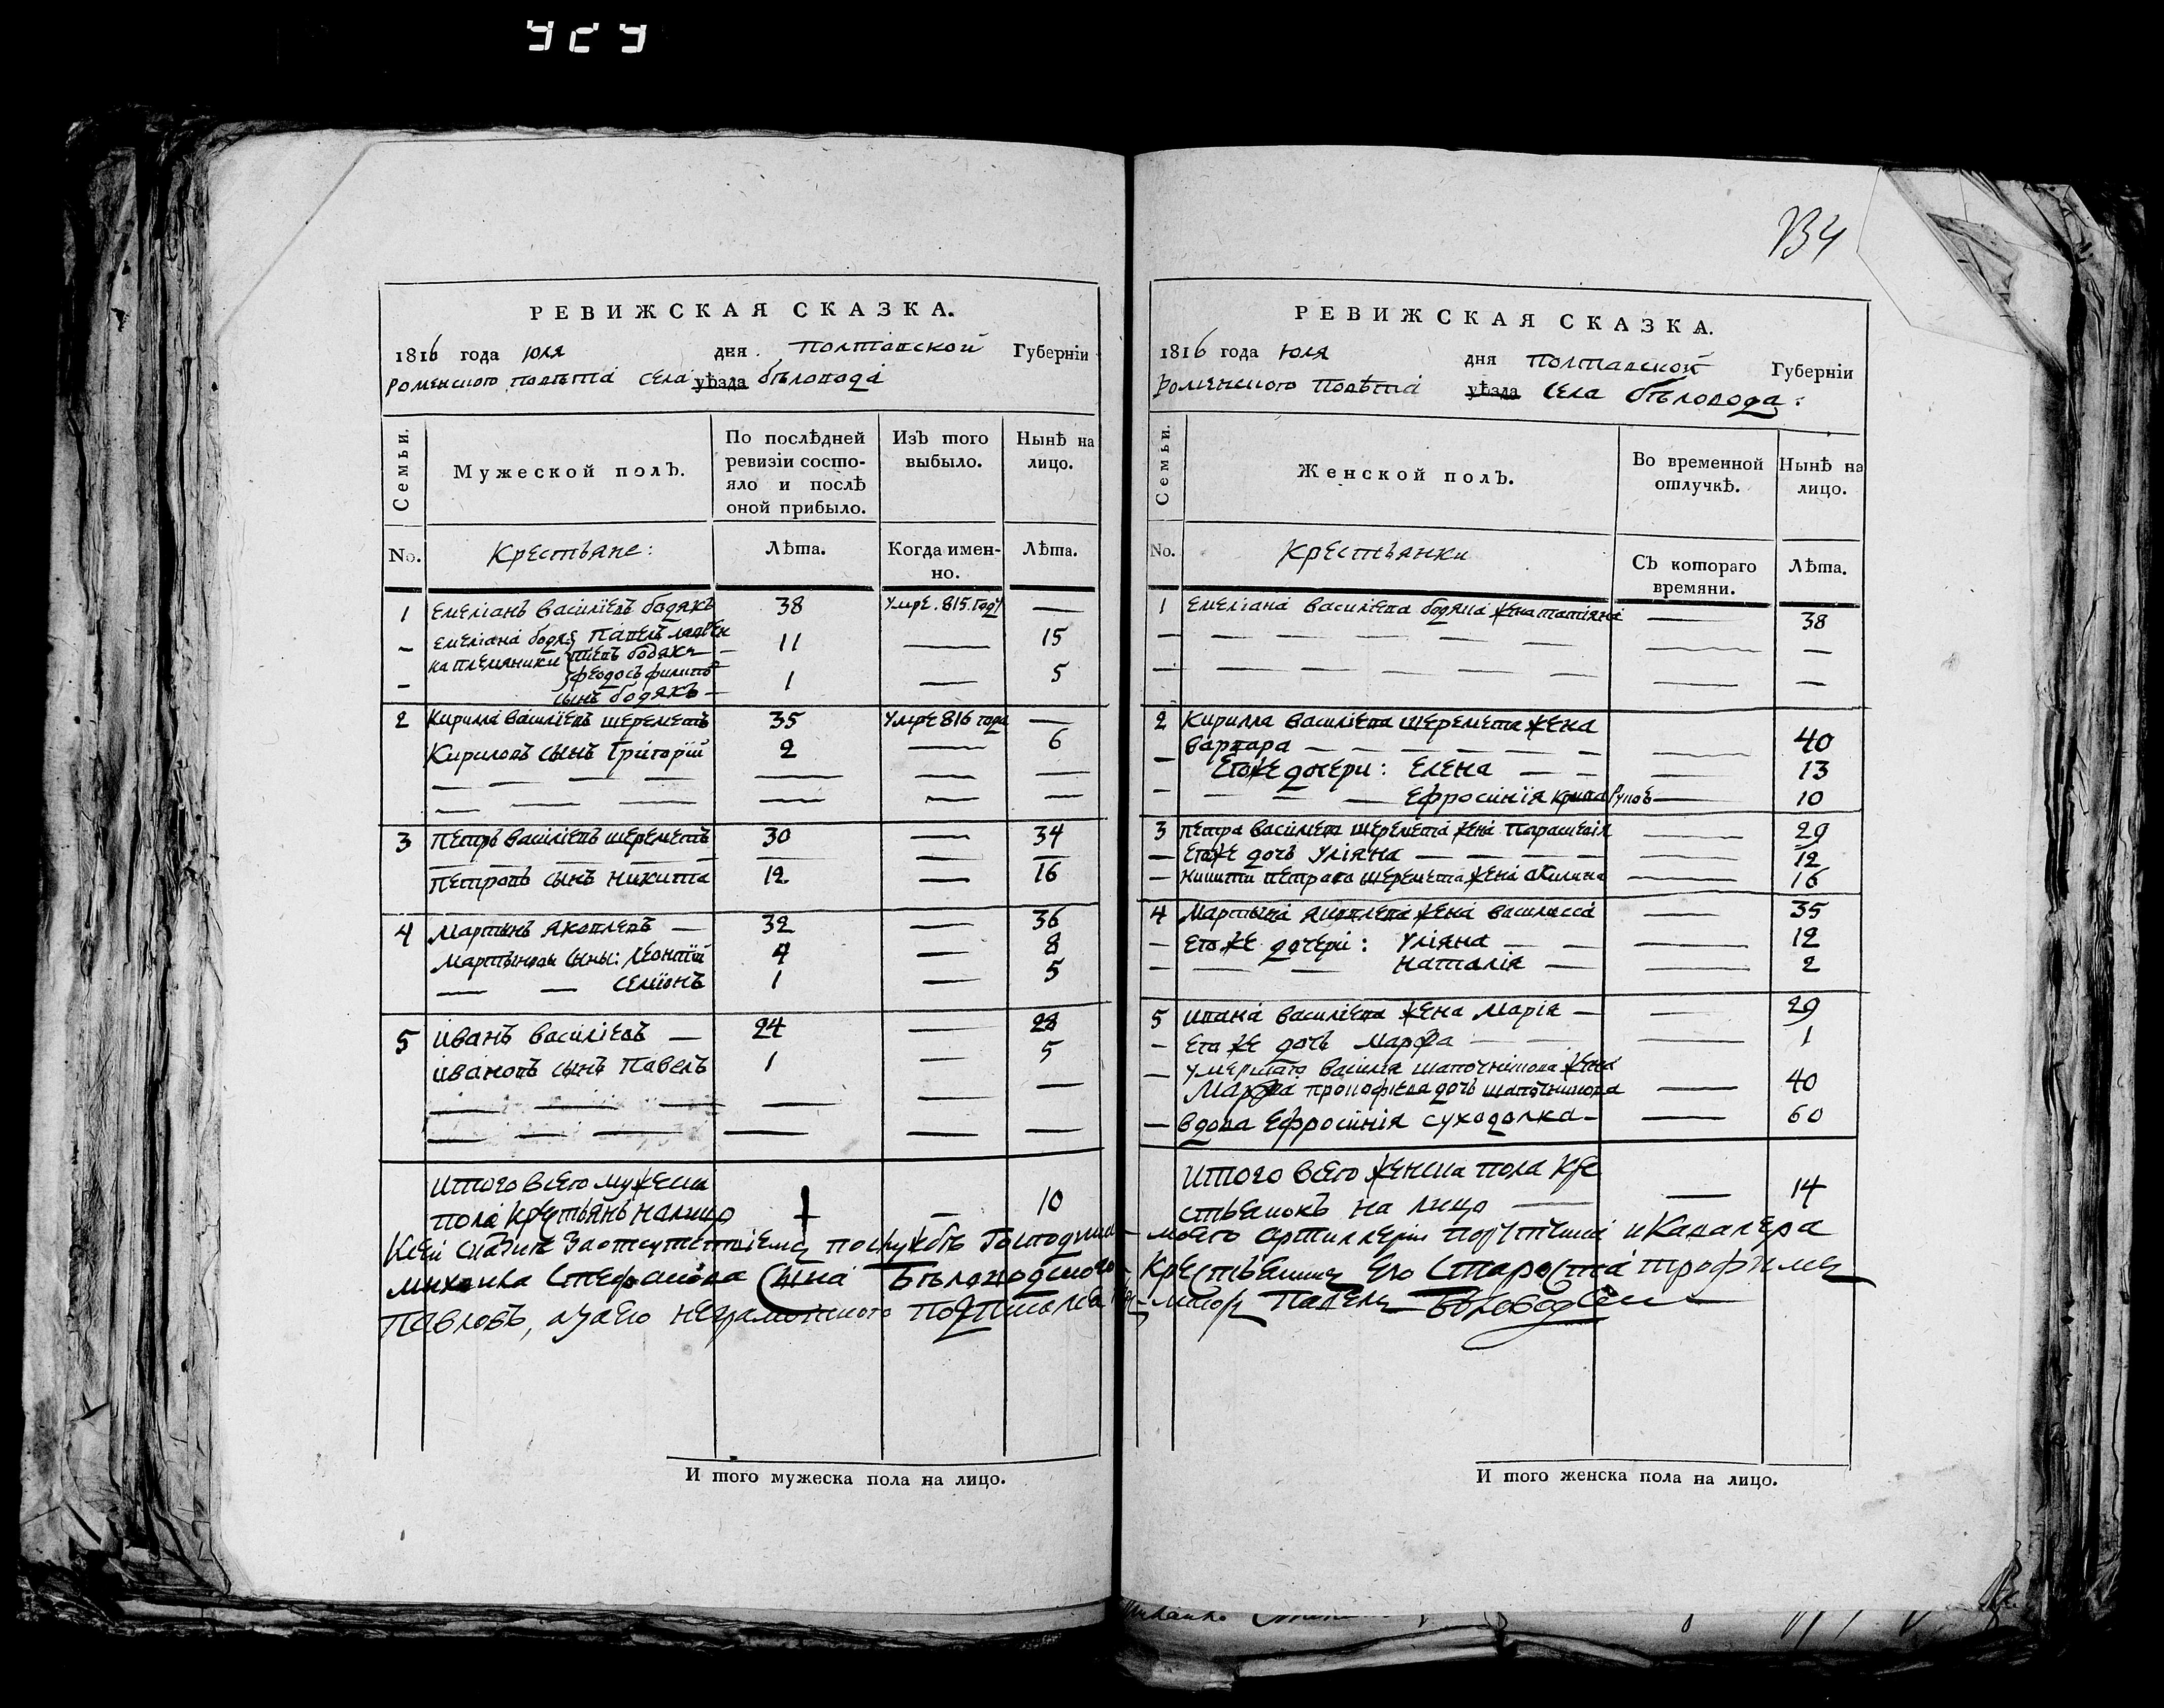 134
РЕВИЖСКАЯ СКАЗКА.
1816 года Юля дня Полтавской Губернiи
Роменского повѣта села уѣзда бѣловода
Семьи. Мужеской полЪ. По послѣдней ревизiи состояло и послѣ оной прибыло. ИзЪ того выбыло. Нынѣ на лицо.
No. Крестьяне: Лѣта. Когда именно. Лѣта.
1 Емелiанъ Василiевъ бодякъ 38 Умре. 815. году —
— Емелiана бодяка племяники Павелъ бодякъ — 11 — 15
— феодосъ филиповъ сынъ бодякъ — 1 — 5
2 Кирила Василiевъ шереметъ 35 Умре 816 года —
Кириловъ сынъ Григорiй 2 — 6
3 Петръ Василiевъ шереметъ 30 — 34
Петровъ сынъ Никита 12 — 16
4 Мартынъ Яковлевъ — 32 — 36
Мартыновы сыны: Леонтiй 4 — 8
— — Семiонъ 1 — 5
5 Иванъ Василiевъ — 24 — 28
Ивановъ сынъ Павелъ 1 — 5
Итого всего мужеска
пола крестьянъ налицо — 10
И того мужеска пола на лицо.
РЕВИЖСКАЯ СКАЗКА.
1816 года Юля дня Полтавской Губернiи
Роменского Повѣта уѣзда Села бѣловода:
Семьи. Женской полЪ. Во временной отлучкѣ. Нынѣ на лицо.
No. Крестьянки СЪ котораго времяни. Лѣта.
1 Емелiана Василiева бодяка жена татiяна — 38
2 Кирилла Василiева шеремета жена
Варвара — 40
— Егоже дочери: Елена — 13
— Ефросинiя — 10
3 Петра Василiева шеремета жена Параскевiя — 29
— Егоже дочь Улiяна — 12
— Никиты Петрова шеремета жена Акилина — 16
4 Мартына Яковлева жена Василисса — 35
— Его же дочери: Улiяна — 12
— Наталiя — 2
5 Ивана Василiева жена Марiя — 29
— Его же дочь Марфа — 1
— умершаго Василя шапочникова жена
Марфа прокофiева дочь шапочникова — 40
— вдова Ефросинiя суходолка — 60
Итого всего женска пола кре
стьянокъ на лицо — 14
Къ сей сказке за отсутствiемъ по службѣ Господина моего артиллерiи порутчика и Кавалера
Михайла Стефанова Сына Бѣловодского Крестьянинъ Его Староста трофимъ
Павловъ, а за его неграмотного подписался Павелъ Бѣловодскiй
И того женска пола на лицо.